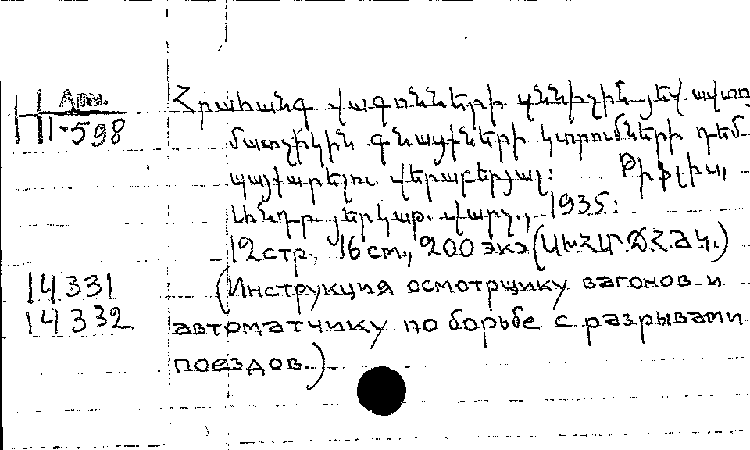 Арм.
II-598
Հրահանգ վագոնների քննիչին յեվ ավտո
մատչիկին գնացքների կտրումների դեմ
պայքարելու վերաբերյալ: Թիֆլիս,
Լենդր. յերկաթ. վարչ., 1935:
12 стр., 16 см., 200 экз (ԱԽՀԱՐՃՀՁԿ.)
14331 (Инструкция осмотрщику вагонов и
14332 автоматчику по борьбе с разрывами
поездов.)